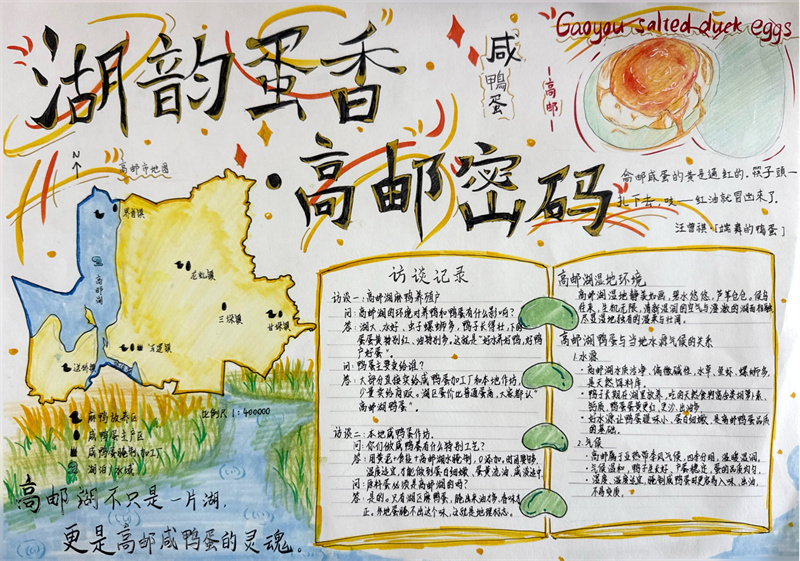 Gaoyou salted duck eggs
湖韵蛋香
咸鸭蛋
高邮
·高邮密码
高邮咸蛋的黄是通红的.筷子头一
扎下去,吱——红油就冒出来了.
汪曾祺·[端午的鸭蛋]
N
高邮市地图
界首镇
高邮湖
龙虬镇
三垛镇
甘垛镇
送桥镇
麻鸭放养区
咸鸭蛋主产区
咸鸭蛋腌制加工厂
湖泊/水域
比例尺 1:400000
高邮湖不只是一片湖,
更是高邮咸鸭蛋的灵魂。
访谈记录
访谈一:高邮湖麻鸭养殖户
问:高邮湖的环境对养鸭和鸭蛋有什么影响?
答:湖大、水好、虫子螺蛳多,鸭子长得壮,下的
蛋蛋黄特别红、油特别多,这就是"好水养好鸭,好鸭
产好蛋"。
问:鸭蛋主要卖给谁?
答:大部分直接卖给咸鸭蛋加工厂和本地作坊,
少量卖给商贩。湖区蛋价比普通蛋高,大家都认"
高邮湖鸭蛋"。
访谈二:本地咸鸭蛋作坊.
问:你们做咸鸭蛋有什么特别工艺?
问:原料蛋必须是高邮湖的吗?
答:是的。只有湖区麻鸭蛋,腌出来油多、香味
正。外地蛋腌不出这个味,这就是地理标志。
高邮湖湿地环境
高邮湖湿地静美如画,碧水悠悠,芦苇苍苍。候鸟
往来,生机无限,清新湿润的空气与澄澈的湖面相融
尽显湿地独有的温柔与壮阔。
高邮湖鸭蛋与当地水源气候的关系
1.水源
·高邮湖水质洁净、偏微碱性,水草、鱼虾、螺蛳多,
是天然饵料库。
·鸭子长期在湖里放养,吃的天然食料富含类胡萝卜素、
钙质,鸭蛋蛋黄更红、更沙、出油多
·好水源让鸭蛋腥味小、蛋白细嫩、是高邮鸭蛋品质
的基础。
2.气候
·高邮属于亚热带季风气候,四季分明,温暖湿润。
·气候温和,鸭子生长好、产蛋稳定,蛋的品质均匀.
·湿度、温度适宜,腌制咸鸭蛋时更容易入味、出油,
不易变质。